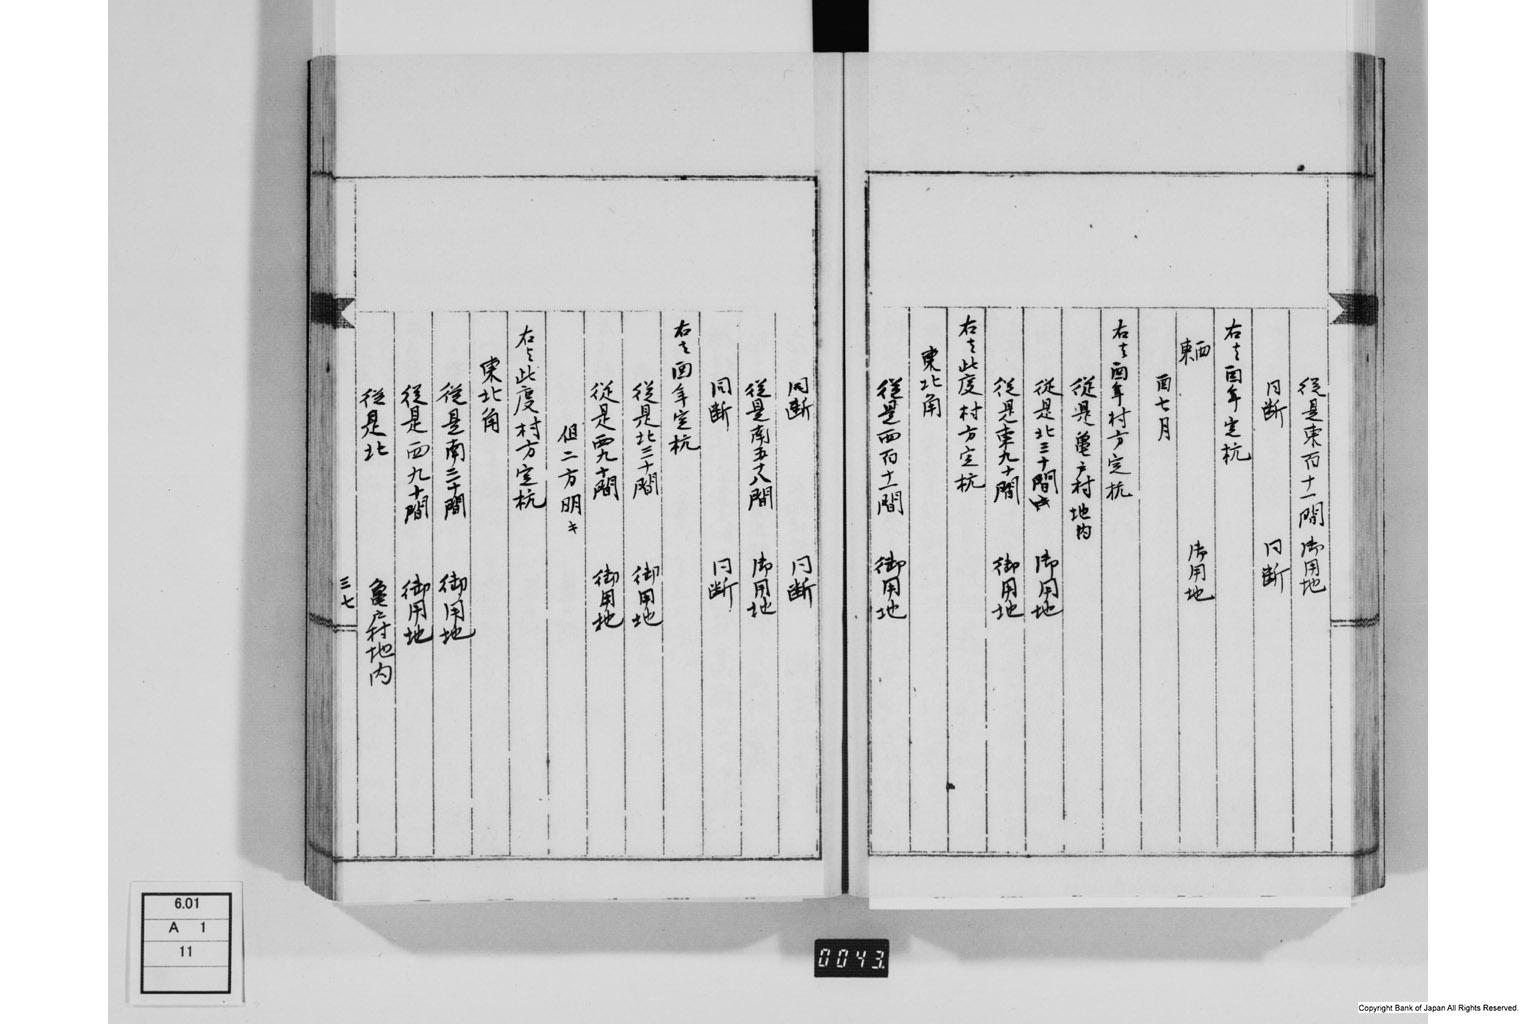 従是東百十一間 御用地
同断 同断
右之酉年定杭
西
東 御用地
酉七月
右之酉年村方定杭
従是亀戸村地内
従是北三十間 御用地
従是東九十間 御用地
右之此度村方定杭
東北角
従是西百十一間 御用地
同断 同断
従是南五十八間 御用地
同断 同断
右之酉年定杭
従是北三十間 御用地
従是西九十間 御用地
但二方明キ
右之此度村方定杭
東北角
従是南三十間 御用地
従是西九十間 御用地
従是北 亀戸村地内
三七
6.01
A 1
11
0043
Copyright Bank of Japan All Rights Reserved.